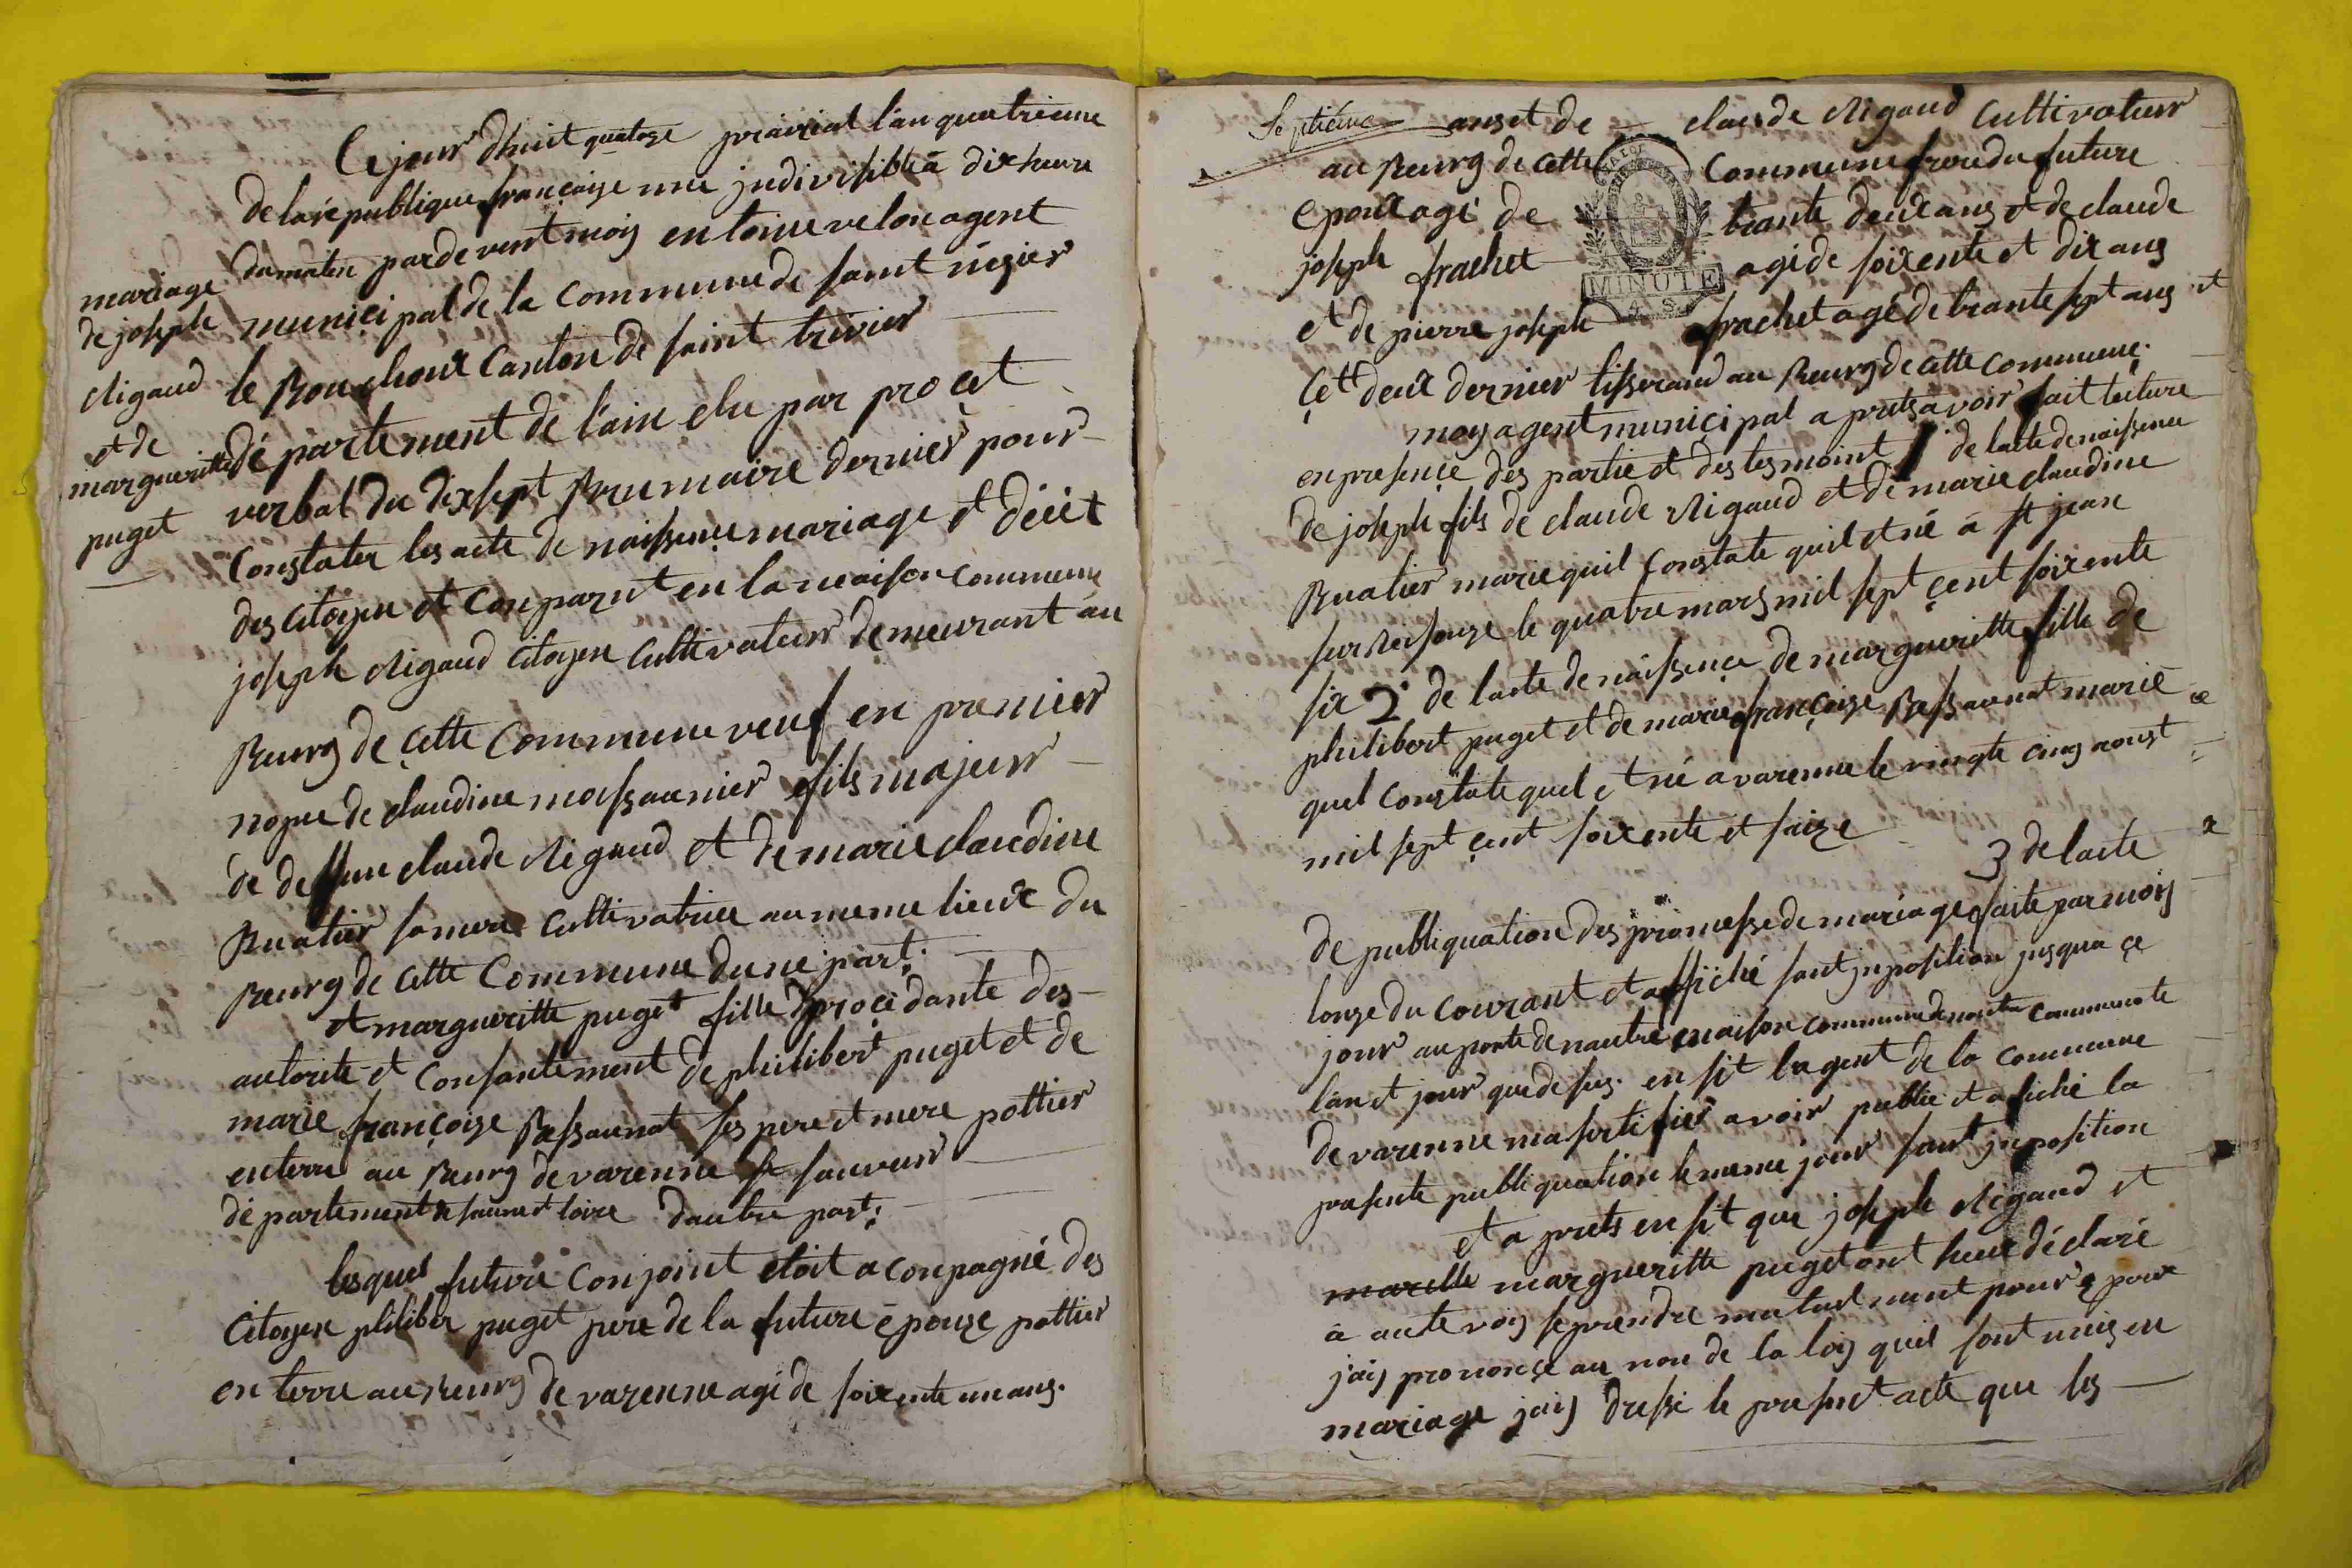 Ce jour dhuit quatoze prairial l'an quatrieme
de la republique françaize une jndivisible a dix heure
du matin pardevent moij entoine velon agent
municipal de la commune de saint nizier
le Bouchoux canton de saint trivier
département de l'ain elu par procet
verbal du dixsept Brumaire dernier pour
constater les acte de naissence mariage et décèt
des citoyen et conparut en la maison commune
joseph Rigaud citoyen cultivateur demeurant au
Bourg de cette commune veuf en premier
nopce de claudine massaunier fils majeur
de deffun claude Rigaud et de marie claudine
Buatier sa mere cultivatrice au meme lieux du
Bourg de cette commune dune part.
et margueritte puget fille procedante des
autorité et consantement de philibert puget et de
marie françoize Bassaunat ses pere et mere pottier
enterre au Bourg de varenne st sauveur
département de saune et loire dautre part.
lesquel future conjoint etoit aconpagné des
citoyen philiber puget pere de la future épouze pottier
en terre au Bourg de varenne agé de soixente un ans.
mariage
de joseph
Rigaud
et de
margueritte
puget
Septieme ans et de claude Rigaud cultivateur
au Bourg de cette commune frere du future
epoux agé de trante deux ans et de claude
joseph frachet agé de soixente et dix ans
et de pierre joseph frachet agé de trante sept ans et
cet deux dernier tisserand au Bourg de cette commune.
moy agent municipal a prets avoir fait lecture
en presence des partie et des tesmoint 1 de lacte de naissence
de joseph fils de claude Rigaud et de marie claudine
Buatier marie quil constate quil et né a st jean
sur Reisouze le quatre mars mil sept cent soixente
six 2 de lacte de naissence de margueritte fille de
philibert puget et de marie françoize Bassaunat marié
quel constate quel et né a varenne le vingte cinq aoust
mil sept cent soixente et saize
3 de lacte
de publiquation des promesse de mariage faite par moij
lonze du courant et affiché sant jnposition jusqua ce
jour au porte de nautre maison commune de nautre commune te
lan et jour que de sus. en sit lagent de la commune
de varenne ma sertifier avoir publié et afiché la
presente publiquation le meme jour sant jnposition
et a prets en sit que joseph Rigaud et
marelle margueritte puget ont heux déclaré
a aute voij se prendre mutuel ment pour e poux
jaij prononcé au non de la loij quil sont unis en
mariage jaij dressé le present acte que les
MINUTE